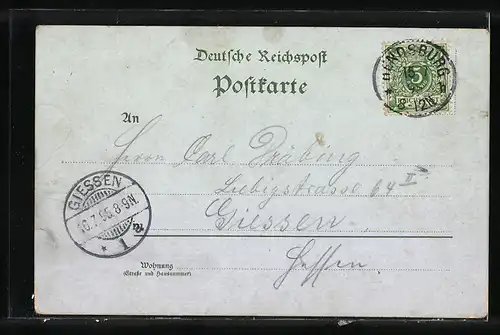 Deutsche Reichspost
Postkarte
RENDSBURG
5
8-12N
An
Herrn Carl Dräbing
Liebigstrasse 64 II
Giessen
GIESSEN
16.7.95.8-9N.
* 1
in
Hessen.
Wohnung
(Straße und Hausnummer)